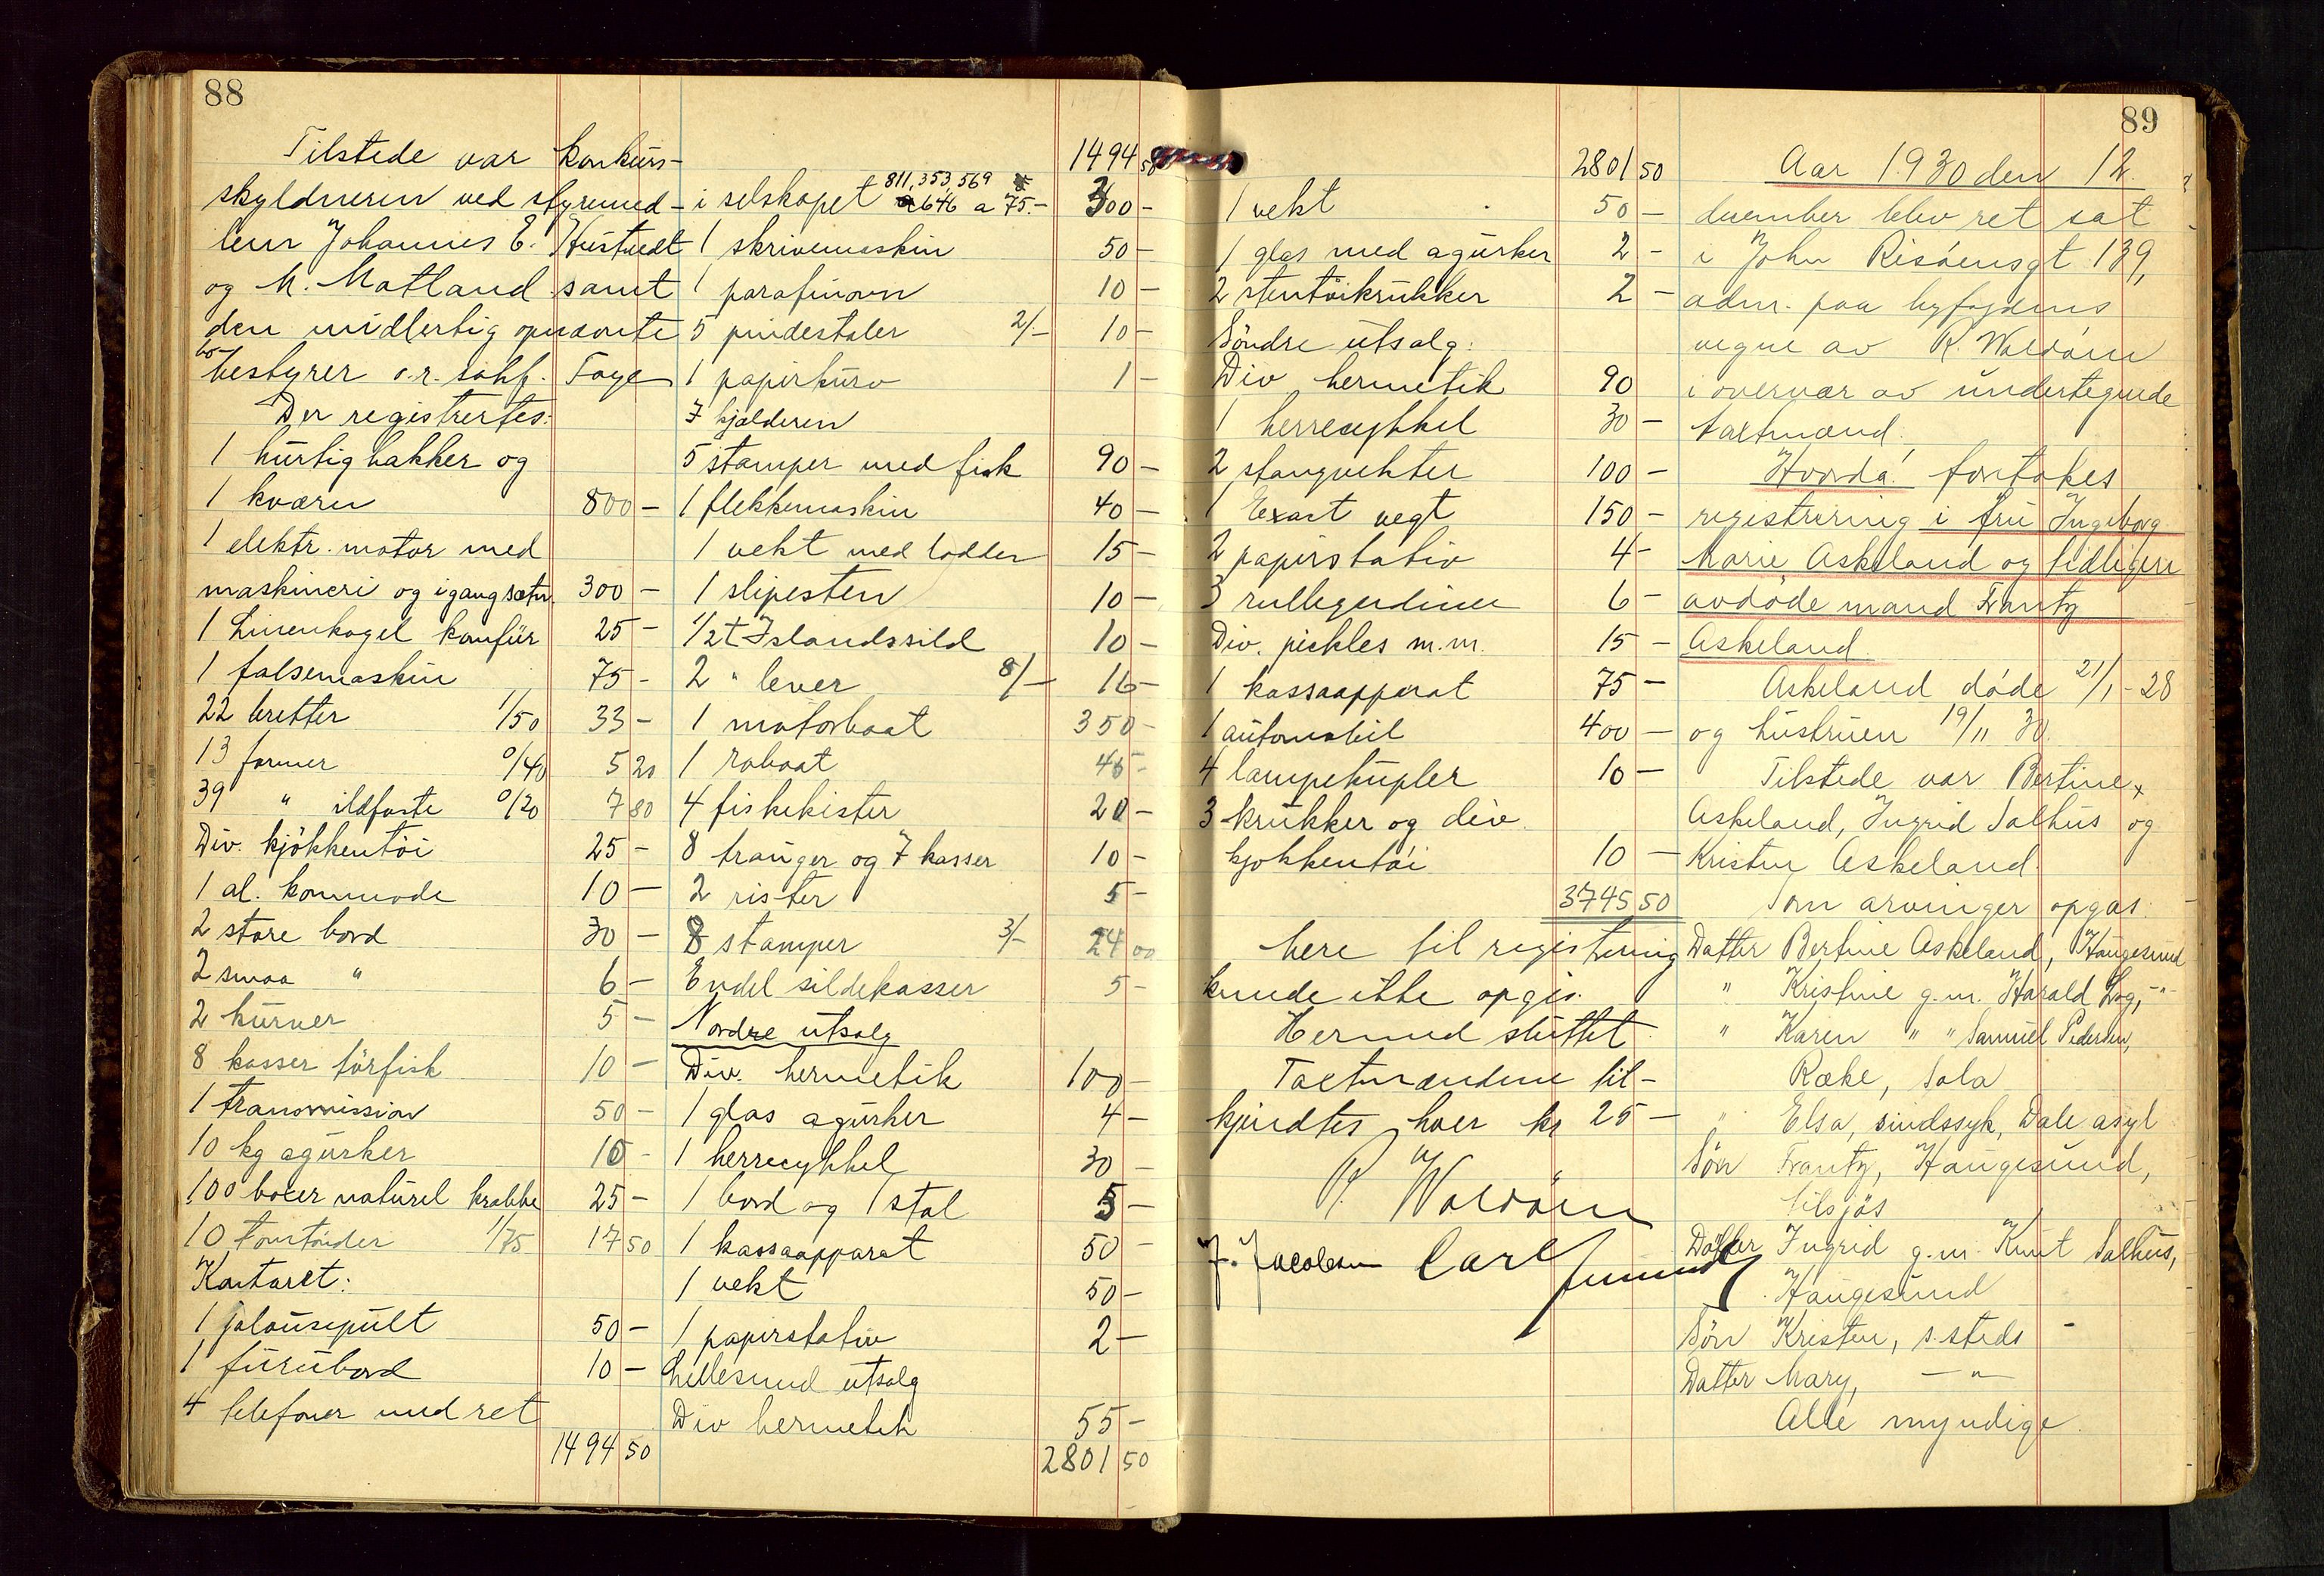 88
Tilstede var konkurs-
skyldneren ved styremed-
lem Johannes E. Hustvedt
og M. Matland samt
den midlertig opnævnte
bo-
bestyrer o.r. sakf. Faye
Der registrertes:
1 hurtighakker og
1 kværn 800 -
1 elektr. motor med
maskineri og igangsætn. 300 -
1 Linenkogel komfür 25 -
1 falsemaskin 75 -
22 bretter 1/50 33 -
13 former 0/40 5 20
39 " ildfaste 0/20 7 80
Div. kjökkentöi 25 -
1 al. kommode 10 -
2 store bord 30 -
2 smaa " 6 -
2 kurver 5 -
8 kasser törfisk 10 -
1 transmission 50 -
10 kg agurker 10 -
100 boxer naturel krabbe 25 -
10 tomtönder 1/75 17 50
Kontoret:
1 jalousipult 50 -
1 furubord 10 -
4 telefoner med ret
1494 50
1494 50
811, 353, 569
i selskapet 646 a 75.- 300 -
1 skrivemaskin 50 -
1 parafinovn 10 -
5 pindestoler 2/- 10 -
1 papirkurv 1 -
I kjælderen
5 stamper med fisk 90 -
1 flekkemaskin 40 -
1 vekt med lodder 15 -
1 slipesten 10 -
1/2 t Islandssild 10 -
2 " lever 8/- 16 -
1 motorbaat 350 -
1 robaat 45 -
4 fiskekister 20 -
8 trauger og 7 kasser 10 -
2 rister 5 -
8 stamper 3/- 24 00
Endel sildekasser 5 -
Nordre utsalg
Div. hermetik 100 -
1 glas agurker 4 -
1 herrecykkel 30 -
1 bord og 1 stol 5 -
1 kassaapparat 50 -
1 vekt 50 -
1 papirstativ 2 -
Lillesund utsalg
Div hermetik 55 -
2801 50
89
2801 50
1 vekt 50 -
1 glas med agurker 2 -
2 stentöikrukker 2 -
Söndre utsalg:
Div hermetik 90
1 herrecykkel 30 -
2 stangvekter 100 -
1 Exact vegt 150 -
2 papirstativ 4 -
3 rullegardiner 6 -
Div. pickles m.m. 15 -
1 kassaapparat 75 -
1 automobil 400 -
4 lampekupler 10 -
3 krukker og div.
kjøkkentöi 10 -
3745 50
Mere til registrering
kunde ikke opgis.
Hermed sluttet.
Taxtmændene til-
kjendtes hver kr 25 -
R. Waldöm
J. Jacobsen Carl
Aar 1930 den 12.
december blev ret sat
i John Risöensgt. 139,
adm. paa byfogdens
vegne av R. Waldöm
i overvær av undertegnede
taxtmænd.
Hvorda: foretokes
registrering i fru Ingeborg
Marie Askeland og tidligere
avdøde mand Frantz
Askeland.
Askeland døde 21/1 - 28
og hustruen 19/11 30.
Tilstede var Bertine
Askeland, Ingrid Salhus og
Kristen Askeland.
Som arvinger opgas:
Datter Bertine Askeland, Haugesund
" Kristine g.m. Harald Log, - " -
" Karen " " Samuel Pedersen,
Ræke, Sola
" Elsa, sindssyk, Dale asyl
Sön Frantz, Haugesund,
tilsjøs
Datter Ingrid g.m. Knut Salhus,
Haugesund
Sön Kristen, s. steds
Datter Mary, - " -
Alle myndige.